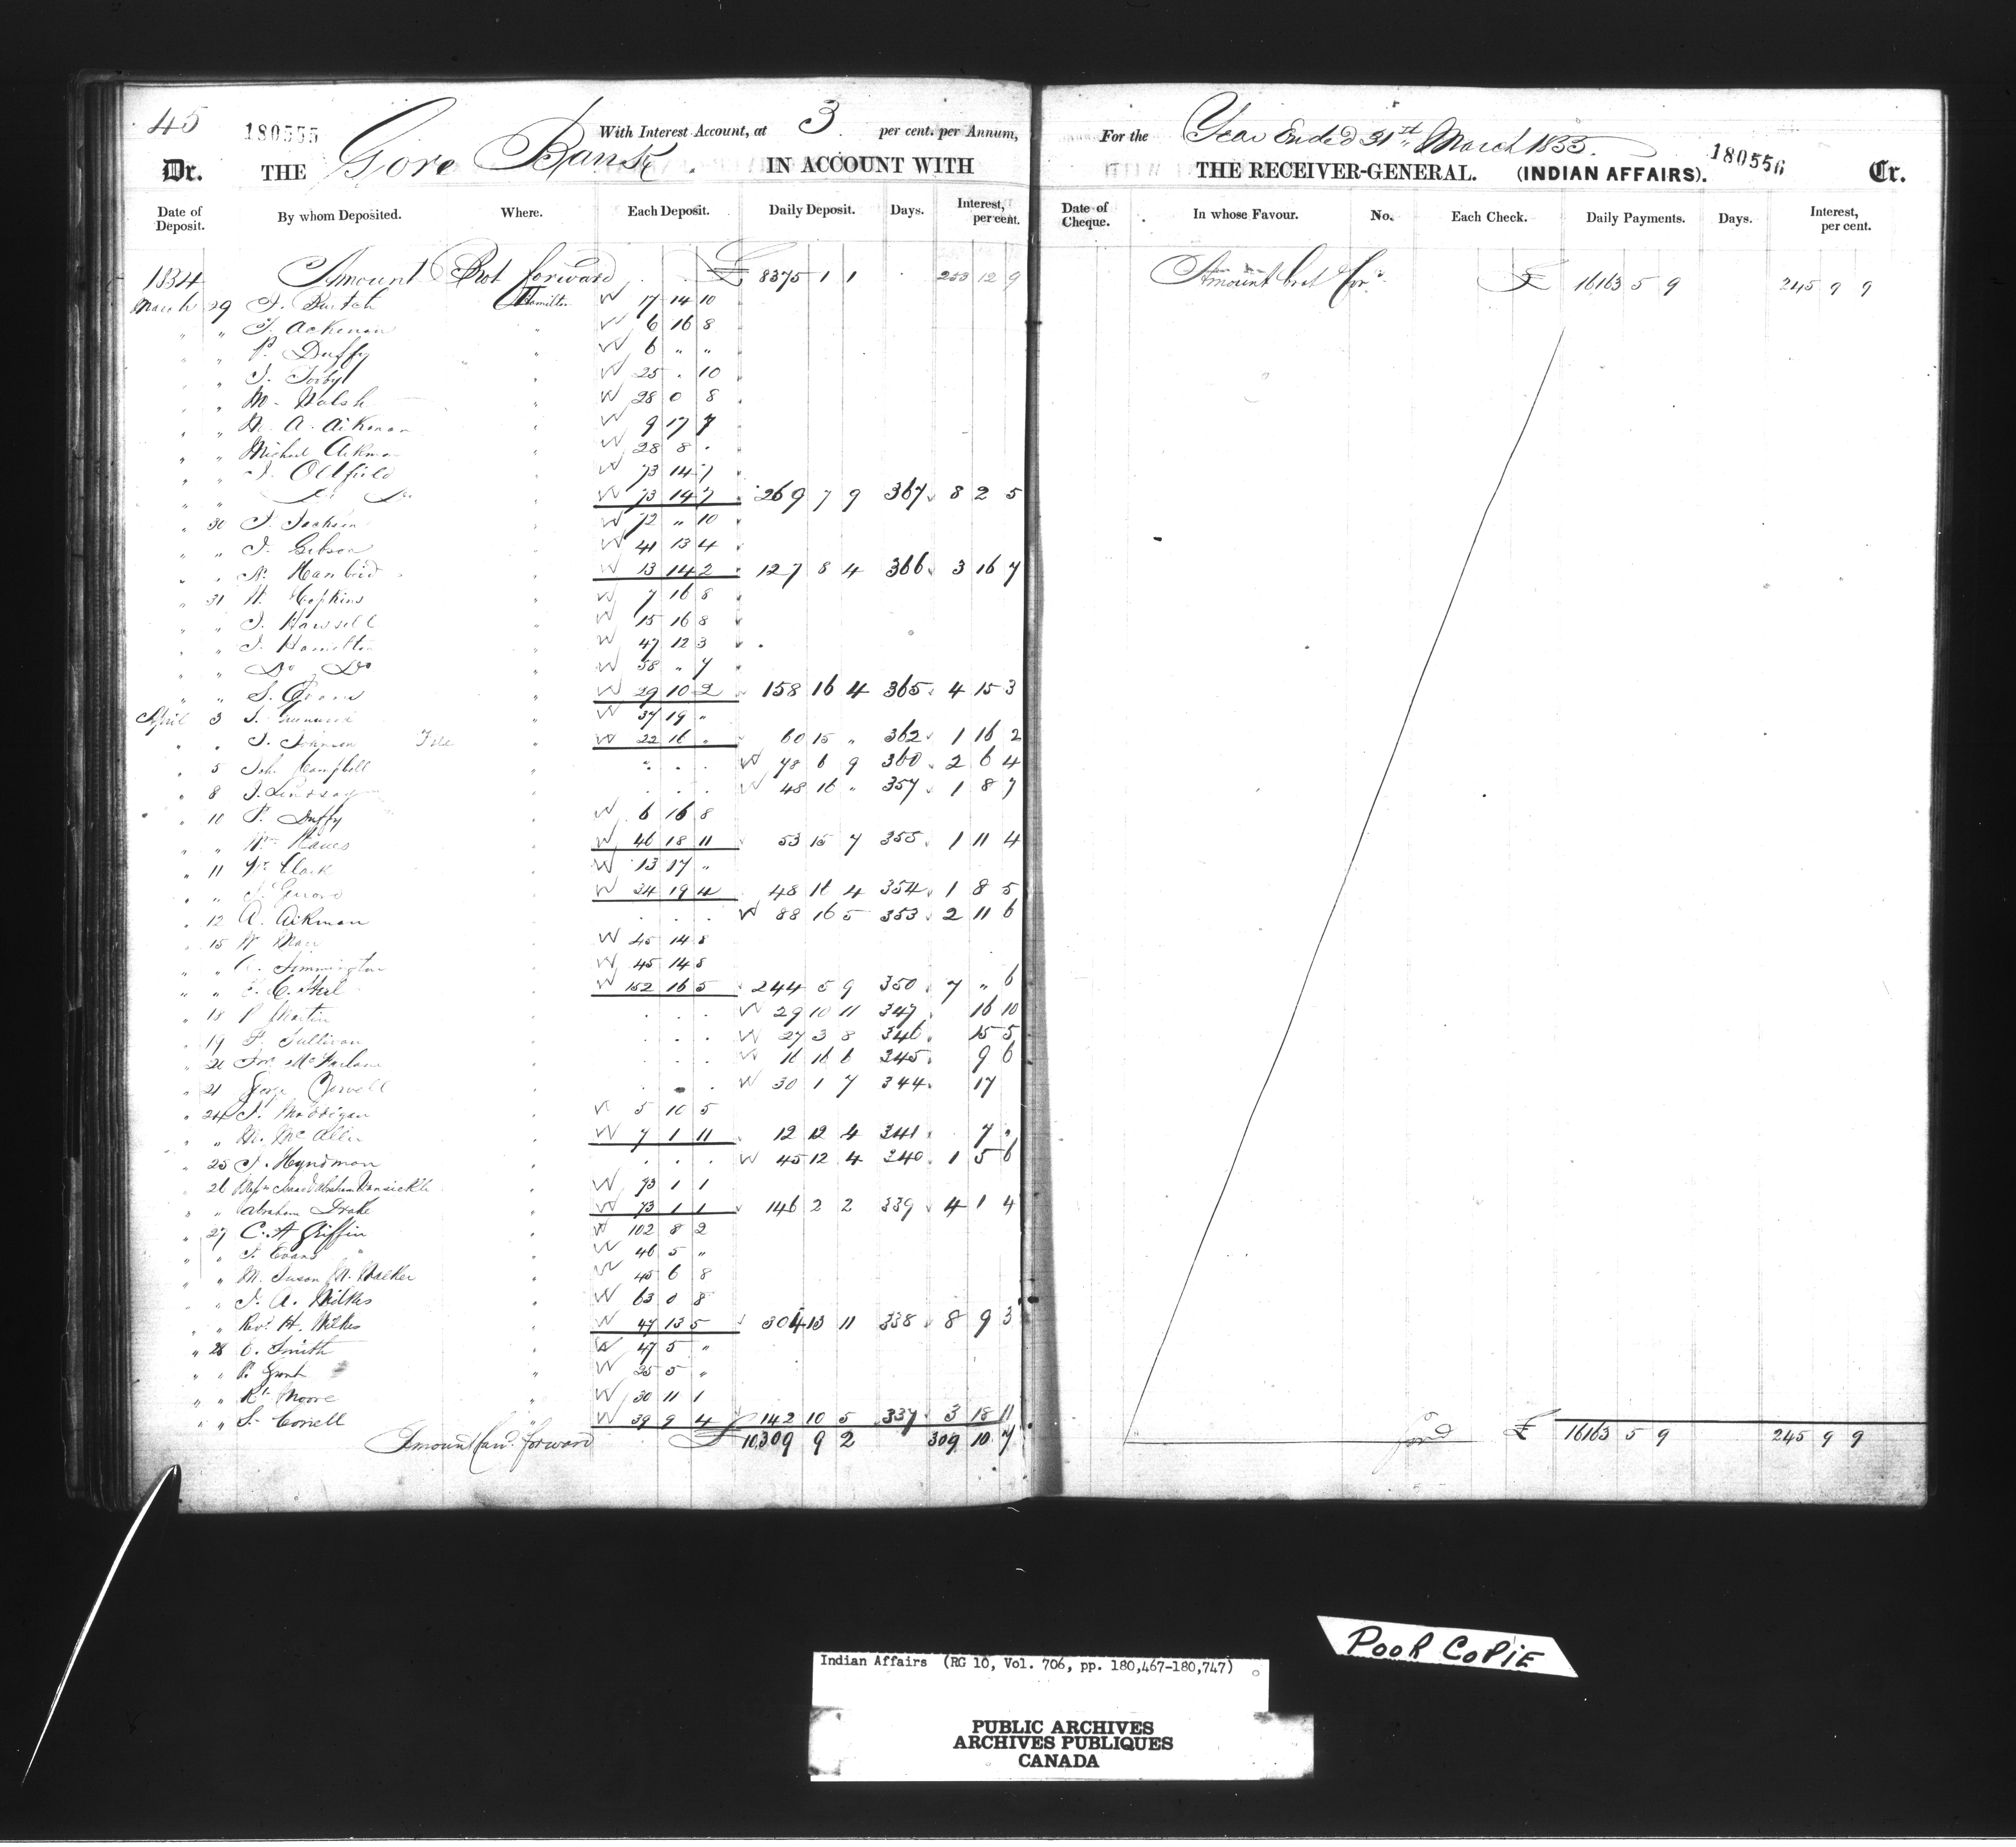 45
180555
With Interest Account, at 3 per cent. per Annum,
Dr. THE Gore Bank. IN ACCOUNT WITH
Date of Deposit. By whom Deposited. Where. Each Deposit. Daily Deposit. Days. Interest, per cent.
Amount Brot forward £ 8375 1 1 253 12 9
March 29 Hamilton 17 14 10
" " 6 16 8
" " P. Duffy " 6 " "
" " " 25 . 10
" " M. Walsh " 28 0 8
" " M. A. Aikman " 9 17 7
" " Michael Aikman " 28 8 .
" " J. Oldfield " 73 14 7
" " Do Do " 73 14 7 269 7 9 367 8 2 5
" 30 J. Jackson " 72 " 10
" " J. Gibson " 41 13 4
" " " 13 14 2 127 8 4 366 3 16 7
" 31 H. Hopkins " 7 16 8
" " " 15 16 8
" " J. Hamilton " 47 12 3
" " Do Do " 58 " 7
" " S. Evans " 29 10 2 158 16 4 365 4 15 3
April 3 " 37 19 "
" " J. Johnson " 22 16 " 60 15 " 362 1 16 2
" 5 Joh. Campbell " 78 6 9 360 2 6 4
" 8 J. Lindsay " 48 16 " 357 1 8 7
" 10 P. Duffy " 6 16 8
" " " 46 18 11 53 15 7 355 1 11 4
" 11 Wm Clark " 13 17 "
" " " 34 19 4 48 16 4 354 1 8 5
" 12 A. Aikman " 88 16 5 353 2 11 6
" 15 45 14 8
" " 45 14 8
" " 152 16 5 244 5 9 350 7 " 6
" 18 P. Martin " 29 10 11 347 16 10
" 19 P. Sullivan " 27 3 8 346 15 5
" 20 Jno McFarlane " 345 9 6
" 21 " 30 1 7 344 17
" 24 P. Maddigan " 5 10 5
" " M. McAllen " 7 1 11 12 12 4 341 7 "
" 25 J. Hyndman " 45 12 4 340 1 5 6
" 26 Abraham Vansickle " 73 1 1
" " Abraham Drake " 73 1 1 146 2 2 339 4 1 4
" 27 C. A Griffin " 102 8 2
" " J. Evans " 46 5 "
" " M. Susan N. Walker " 45 6 8
" " J. A. Wilkes " 63 0 8
" " Revd H. Wilkes " 47 13 5 304 13 11 338 8 9 3
" 28 O. Smith " 47 5 "
" " P. Grant " 25 5 "
" " Rt Moore " 30 11 1
" " S. Correll " 39 9 4 142 10 5 337 3 18 11
Amount Card forward £ 10,309 9 2 309 10 7
For the Year Ended 31st March 1835.
180556
THE RECEIVER-GENERAL. (INDIAN AFFAIRS). Cr.
Date of Cheque. In whose Favour. No. Each Check. Daily Payments. Days. Interest, per cent.
Amount brot for £ 16163 5 9 245 9 9
ford £ 16163 5 9 245 9 9
POOR COPIE
Indian Affairs (RG 10, Vol. 706, pp. 180,467-180,747)
PUBLIC ARCHIVES
ARCHIVES PUBLIQUES
CANADA